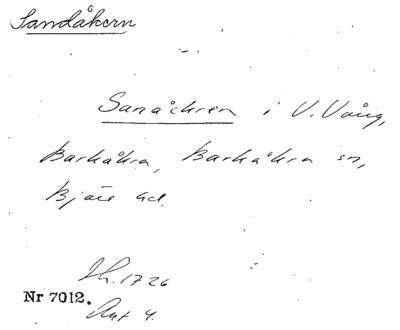 Sandåkern
Sanåckren i V. Vång,
Barkåkra, Barkåkra sn,
Bjäre hd.
Lh. 1726
Nr 7012.
Ant 4.